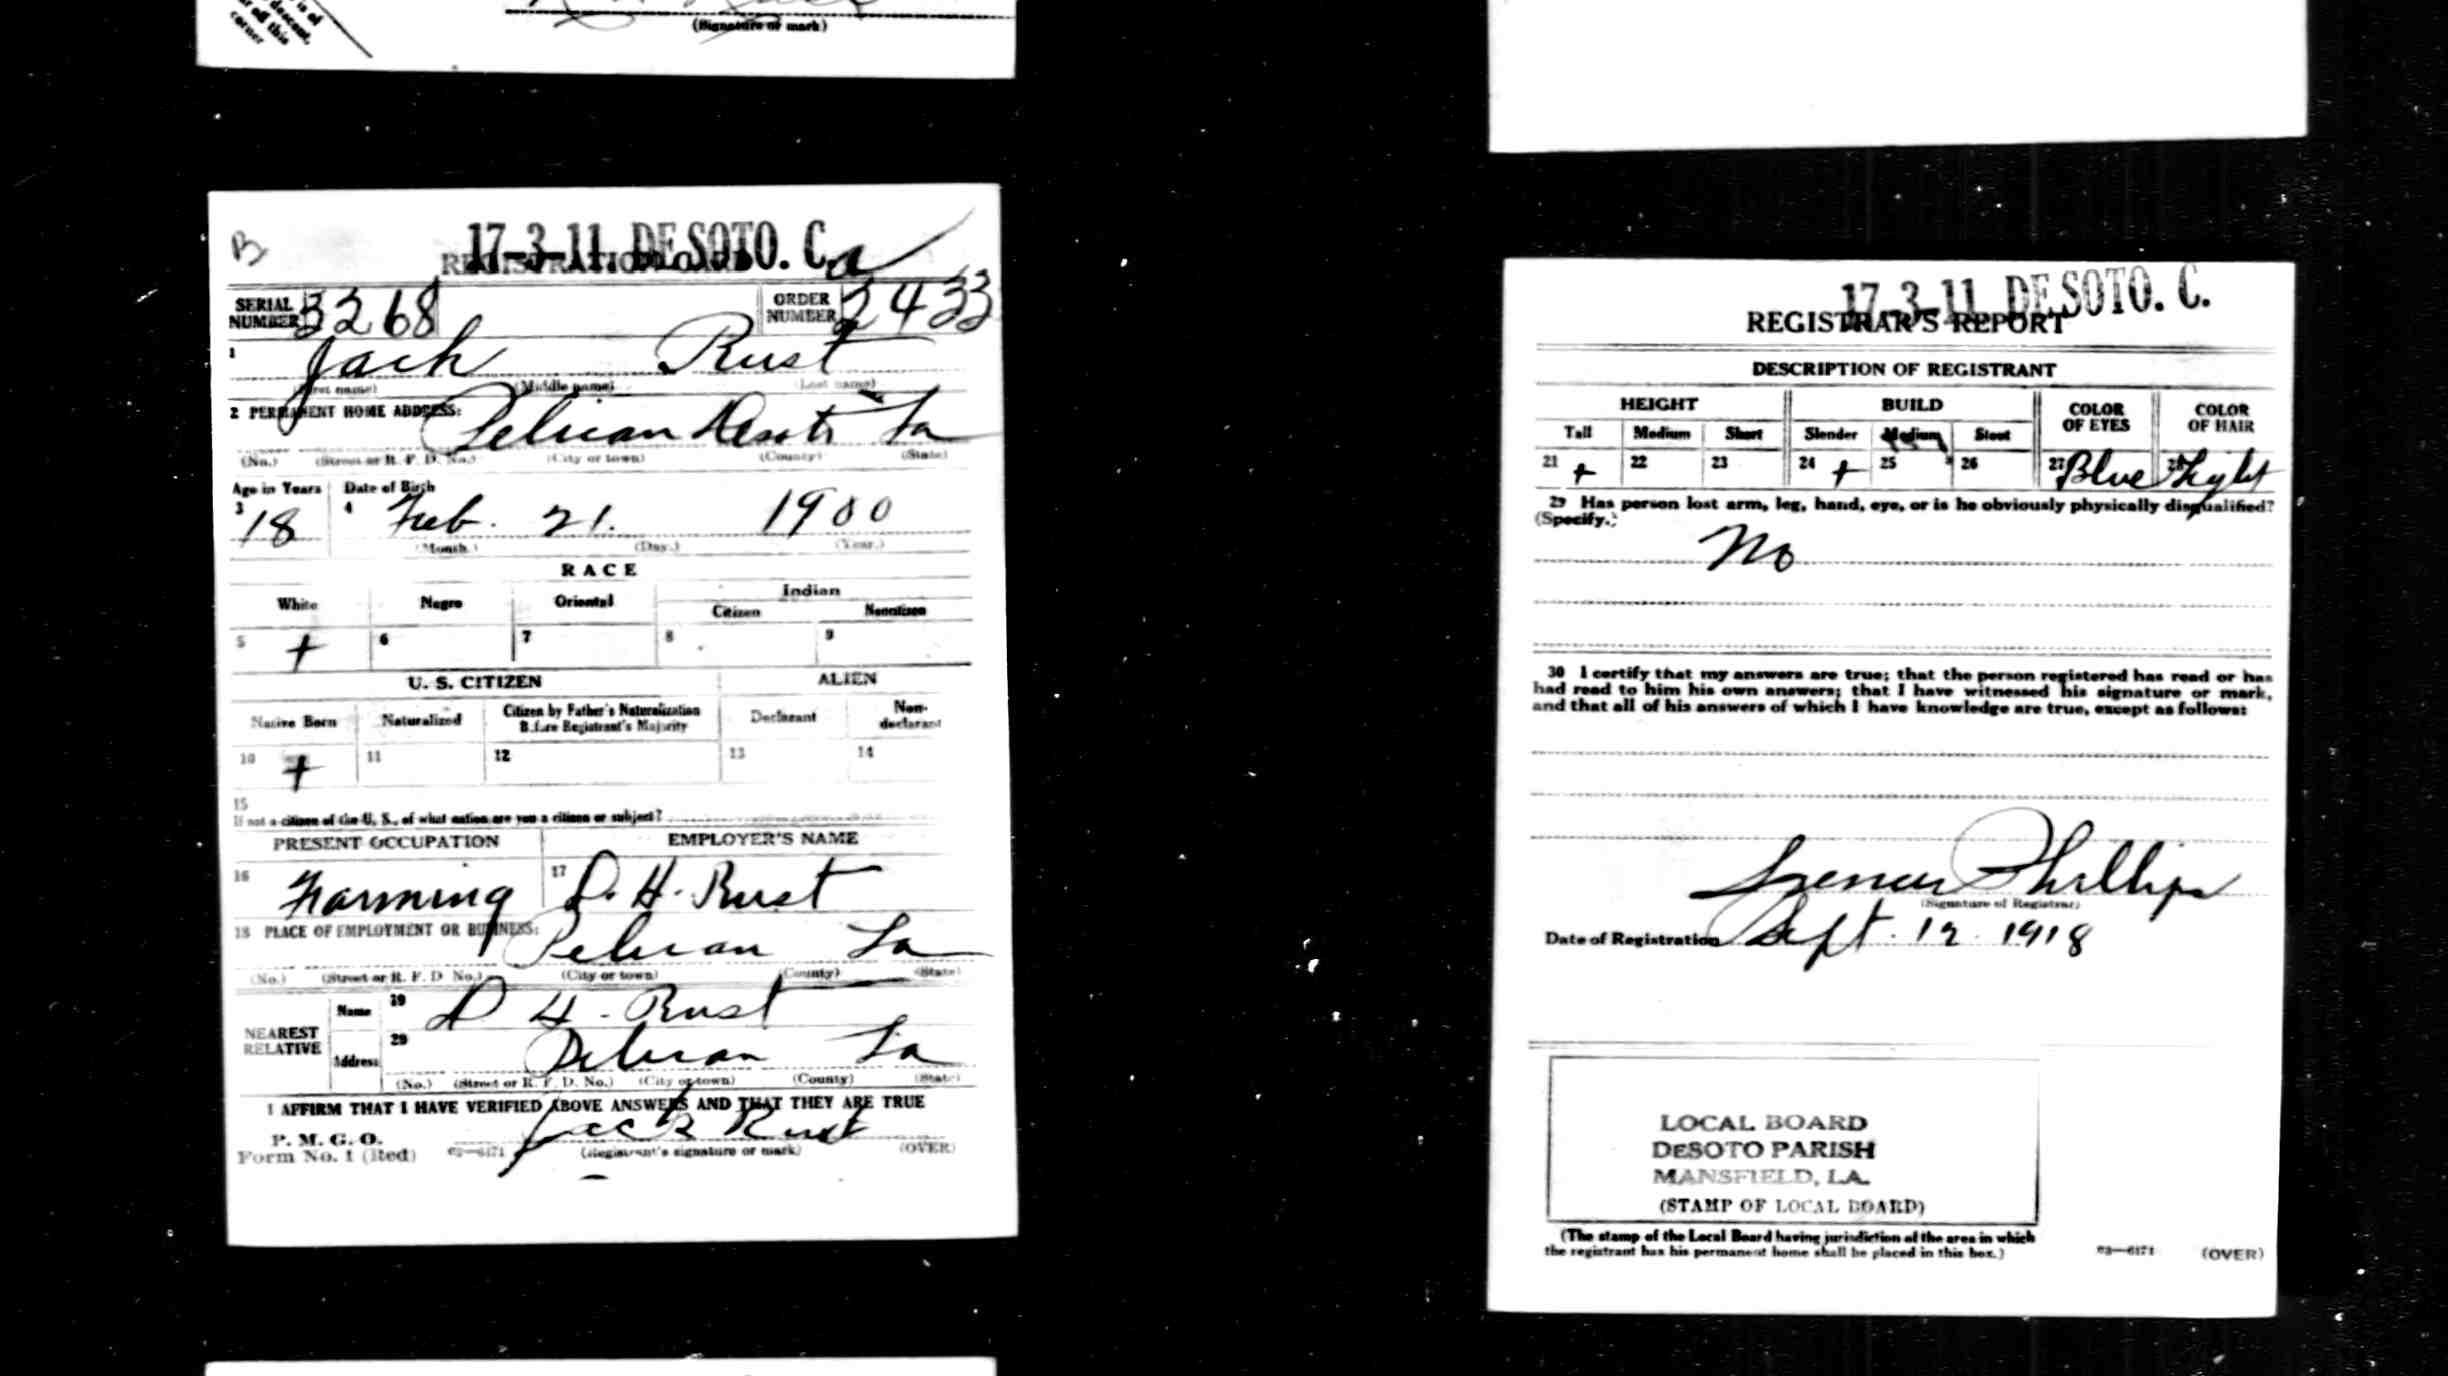 is of
descent,
off this
corner
(Signature or mark)
B
17-3-11. DE SOTO. C. a
REGISTRATION CARD
SERIAL NUMBER 3268 ORDER NUMBER 2433
1 Jack Rust
(First name) (Middle name) (Last name)
2 PERMANENT HOME ADDRESS:
Pelican Desoto La
(No.) (Street or R. F. D. No.) (City or town) (County) (State)
Age in Years Date of Birth
3 18 4 Feb. 21. 1900
(Month.) (Day.) (Year.)
RACE
White Negro Oriental Indian
Citizen Noncitizen
5 + 6 7 8 9
U. S. CITIZEN ALIEN
Native Born Naturalized Citizen by Father's Naturalization Before Registrant's Majority Declarant Non-declarant
10 + 11 12 13 14
15
If not a citizen of the U. S., of what nation are you a citizen or subject?
PRESENT OCCUPATION EMPLOYER'S NAME
16 Farming 17 D. H. Rust
18 PLACE OF EMPLOYMENT OR BUSINESS:
Pelican La
(No.) (Street or R. F. D. No.) (City or town) (County) (State)
NEAREST RELATIVE Name 19 D H. Rust
Address 20 Pelican La
(No.) (Street or R. F. D. No.) (City or town) (County) (State)
I AFFIRM THAT I HAVE VERIFIED ABOVE ANSWERS AND THAT THEY ARE TRUE
P. M. G. O.
Form No. 1 (Red) 03—6171 Jack Rust
(Registrant's signature or mark) (OVER)
17-3-11. DE SOTO. C.
REGISTRAR'S REPORT
DESCRIPTION OF REGISTRANT
HEIGHT BUILD COLOR OF EYES COLOR OF HAIR
Tall Medium Short Slender Medium Stout
21 + 22 23 24 + 25 26 27 Blue 28 Light
29 Has person lost arm, leg, hand, eye, or is he obviously physically disqualified?
(Specify.)
No
30 I certify that my answers are true; that the person registered has read or has
had read to him his own answers; that I have witnessed his signature or mark,
and that all of his answers of which I have knowledge are true, except as follows:
Phillips
(Signature of Registrar)
Date of Registration Sept. 12. 1918
LOCAL BOARD
DESOTO PARISH
MANSFIELD, LA.
(STAMP OF LOCAL BOARD)
(The stamp of the Local Board having jurisdiction of the area in which
the registrant has his permanent home shall be placed in this box.)
03—6171 (OVER)